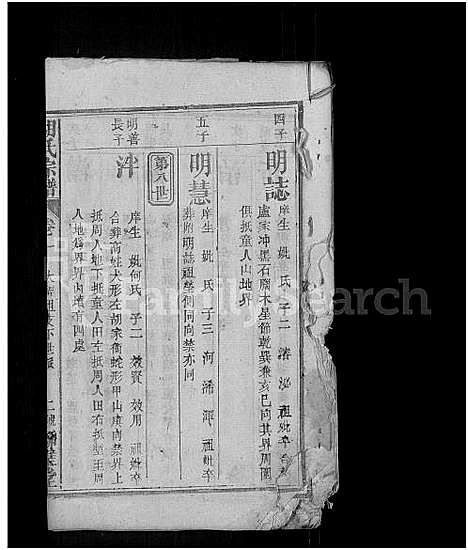 四子
明誌
庠生 妣 氏 子二 濬 泌 祖妣卒
盧家冲黑石廟木星節乾巽兼亥巳向其界周圍
俱抵童人山地界
五子
明慧
庠生 妣 氏 子三 河 浠 渾 祖妣卒
葬附明誌祖塋側同向禁亦同
第八世
明善長子
泮
庠生 妣何氏 子二 效賢 效用 祖妣卒
合葬高姓犬形左胡家衝蛇形甲山庚向禁界上
抵周人地下抵童人田左抵周人田右抵塋主周
人地為界界內墳有四處
氏宗譜
卷一
FamilySearch